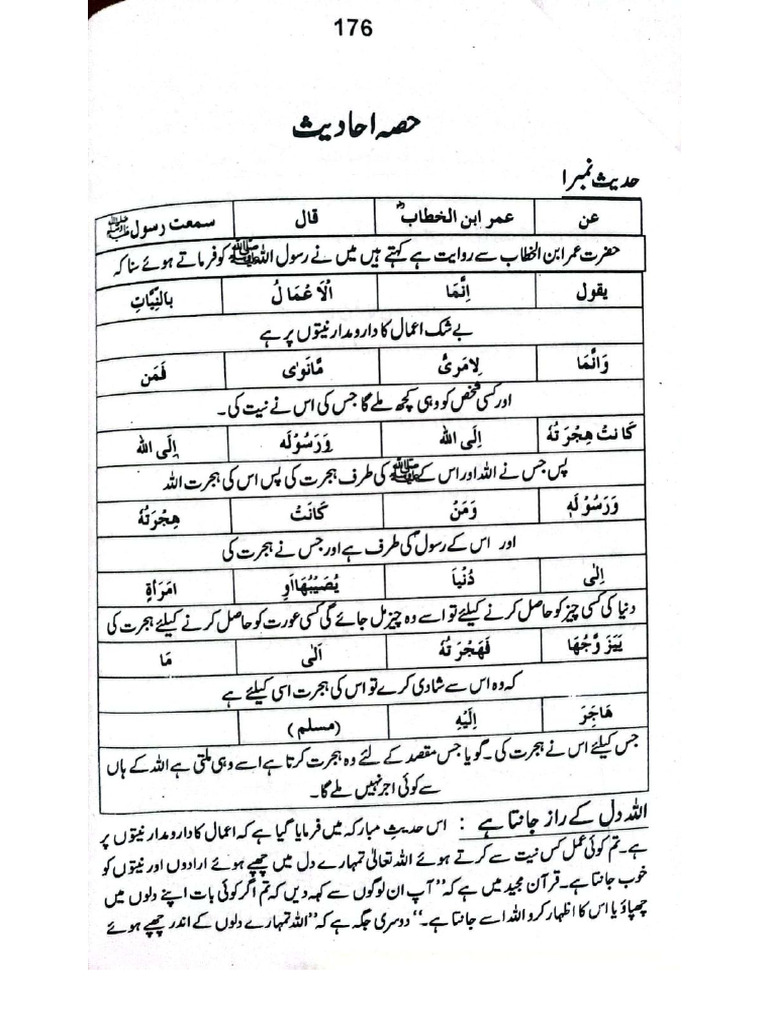 176
حصہ احادیث
حدیث نمبر ۱
عن عمر ابن الخطابؓ قال سمعت رسول ﷺ
حضرت عمر ابن الخطاب سے روایت ہے کہتے ہیں میں نے رسول اللہ ﷺ کو فرماتے ہوئے سنا کہ
یقول اِنَّمَا الْاَعْمَالُ بالنِّیَّاتِ
بے شک اعمال کا دارومدار نیتوں پر ہے
وَانَّمَا لِامَرِیُٔ مَّانَوٰی فَمَن
اور کسی شخص کو وہی کچھ ملے گا جس کی اس نے نیت کی۔
کَانتُ هِجُرَتُهٗ اِلَی اللّٰہ وَرَسُوُلَه اِلَی اللّٰہ
پس جس نے اللہ اور اس کے ﷺ کی طرف ہجرت کی پس اس کی ہجرت اللہ
وَرَسُوُلَهٖ وَمَنُ کَانَتُ هِجُرَتُهٗ
اور اس کے رسول کی طرف ہے اور جس نے ہجرت کی
اِلٰی دُنُیاَ یُصَیُبُهَااَو امَرَأةٍ
دنیا کی کسی چیز کو حاصل کرنے کیلئے تو اسے وہ چیز مل جائے گی کسی عورت کو حاصل کرنے کیلئے ہجرت کی
یَیَزَوَّجُهَا فَهِجُرَتُهٗ اَلٰی مَا
کہ وہ اس سے شادی کرے تو اس کی ہجرت اسی کیلئے ہے
هَاجِرَ اِلَیُهِ (مسلم)
جس کیلئے اس نے ہجرت کی۔ گویا جس مقصد کے لئے وہ ہجرت کرتا ہے اسے وہی ملتی ہے اللہ کے ہاں
سے کوئی اجر نہیں ملے گا۔
اللہ دل کے راز جانتا ہے : اس حدیث مبارکہ میں فرمایا گیا ہے کہ اعمال کا دارومدار نیتوں پر
ہے۔ تم کوئی عمل کس نیت سے کرتے ہوئے اللہ تعالیٰ تمہارے دل میں چھپے ہوئے ارادوں اور نیتوں کو
خوب جانتا ہے۔ قرآن مجید میں ہے کہ ”آپ ان لوگوں سے کہہ دیں کہ تم اگر کوئی بات اپنے دلوں میں
چھپاؤ یا اس کا اظہار کرو اللہ اسے جانتا ہے۔“ دوسری جگہ ہے کہ ”اللہ تمہارے دلوں کے اندر چھپے ہوئے